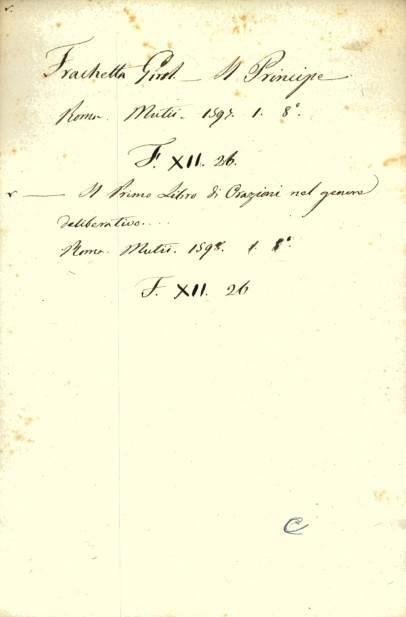 Frachetta Girol. — Il Principe.
Roma. Mutii. 1597. 1. 8°.
F. XII. 26.
— Il Primo Libro di Orazioni nel genere
deliberativo....
Roma. Mutii. 1598. 1. 8°.
F. XII. 26
C